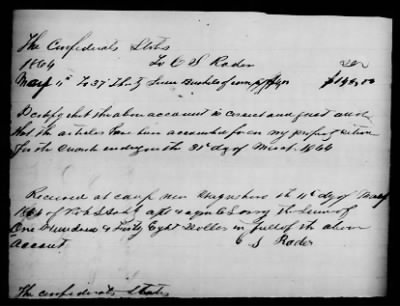 The Confederate States
1864 To C S Rader Dr
May 11th To 37 Thirty Seven Bushels of corn $148,00
I certify that the above account is correct and just and
that the articles have been accounted for on my
for the month ending on the 31st day of March 1864
Received at camp near the 11th day of May
1864 of the Sum of
One Hundred & Forty Eight Dollars in full of the above
Account C S Rader
The Confederate States